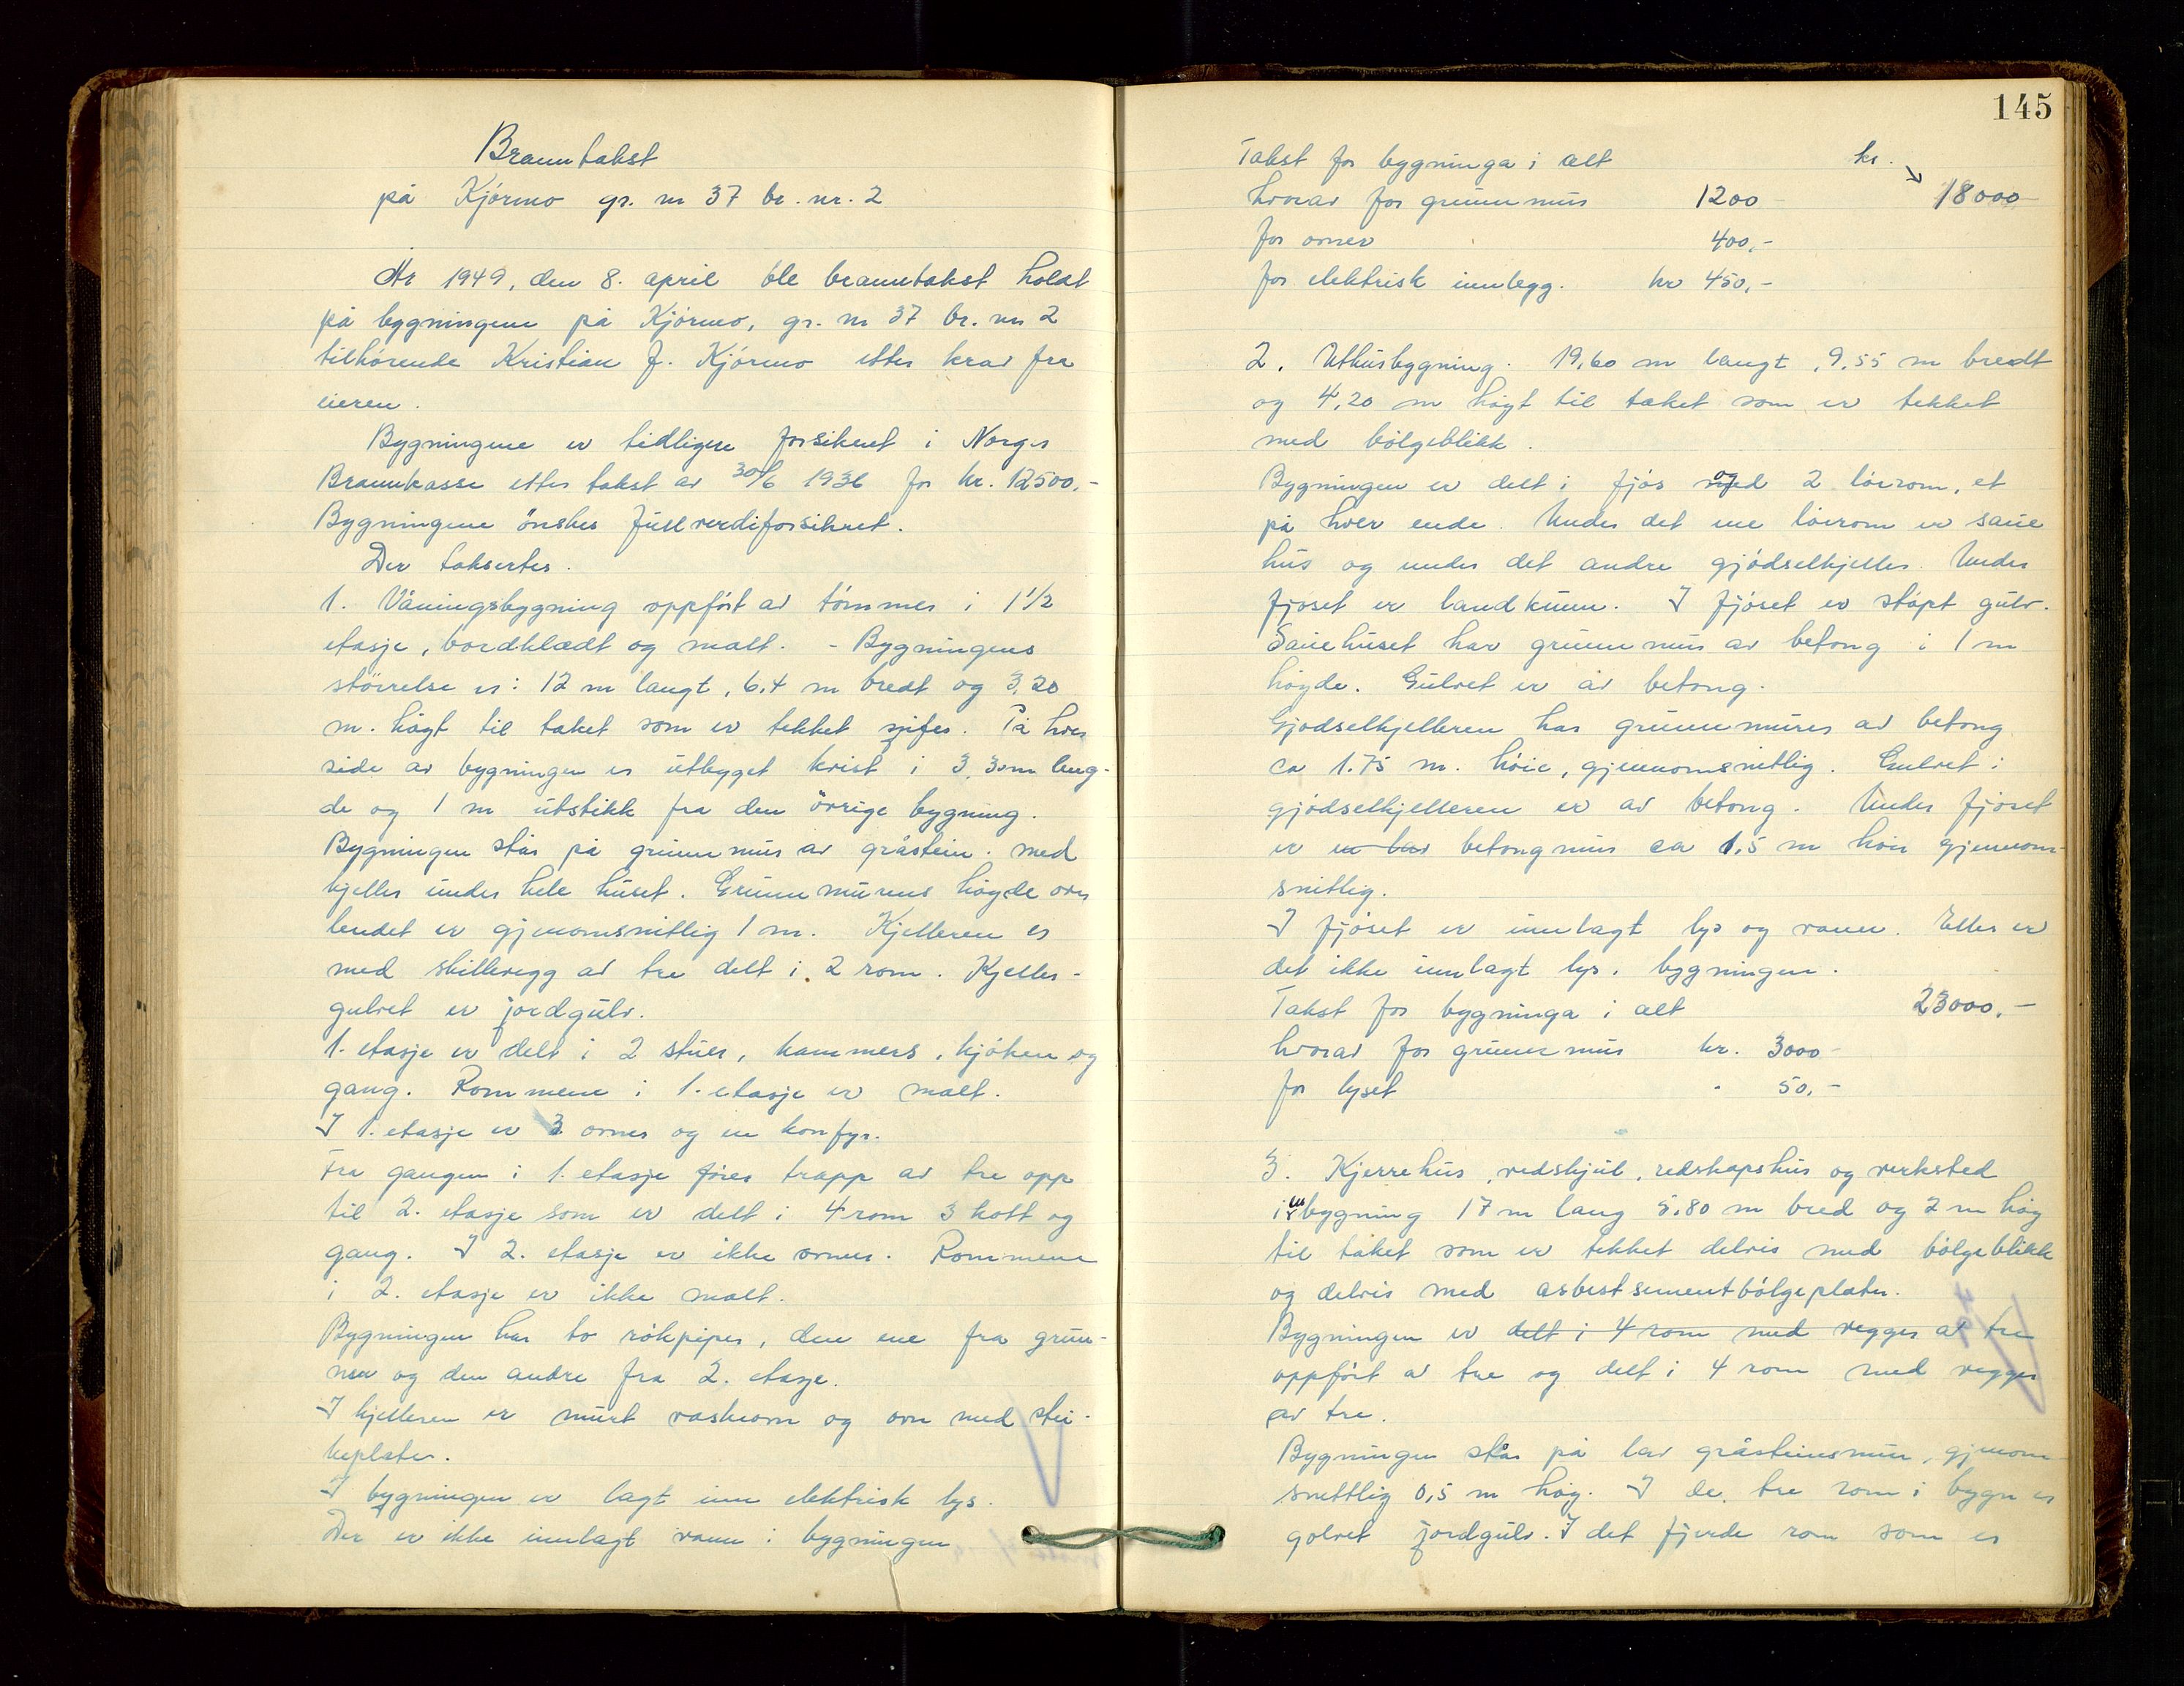 Branntakst
på Kjörmo gr. nr 37 br. nr. 2
År 1949, den 8. april ble branntakst holdt
på bygningene på Kjörmo, gr. nr 37 br. nr 2
tilhörende Kristian J. Kjörmo etter krav fra
eieren.
Bygningene er tidligere forsikret i Norges
Brannkasse etter takst av 30/6 1936 for kr. 12500.-
Bygningene önskes fullverdiforsikret.
Der taksertes.
1. Våningsbygning oppfört av tömmer i 1 1/2
etasje, bordklædt og malt. - Bygningens
störrelse er: 12 m langt, 6.4 m bredt og 3,20
m. högt til taket som er tekket sjifer. På hver
side av bygningen er utbygget krist i 3,30 m leng-
de og 1 m utstikk fra den övrige bygning.
Bygningen står på grunnmur av gråstein. med
kjeller under hele huset. Grunnmurens högde over
lendet er gjenomsnitlig 1 m. Kjelleren er
med skillevegg av tre delt i 2 rom. Kjeller-
gulvet er jordgulv.
1. etasje er delt i 2 stuer, kammers, kjöken og
gang. Rommene i 1. etasje er malt.
I 1. etasje er 3 ovner og en komfyr.
Fra gangen i 1. etasje förer trapp av tre opp
til 2. etasje som er delt i 4 rom 3 kott og
gang. I 2. etasje er ikke ovner. Rommene
i 2. etasje er ikke malt.
Bygningen har to rökpiper, den ene fra grun-
nen og den andre fra 2. etasje.
I kjelleren er murt vaskeovn og ovn med stei-
keplater.
I bygningen er lagt inn elektrisk lys.
Der er ikke innlagt vann i bygningen
145
Takst for bygninga i alt kr.
hvorav for grunnmur 1200 - 18000
for ovner 400,-
for elektrisk innlegg. kr 450,-
2. Uthusbygning. 19,60 m langt, 9,55 m bredt
og 4,20 m högt til taket som er tekket
med bölgeblikk.
Bygningen er delt i fjös og 2 löerom, et
på hver ende. Under det ene löerom er saue
hus og under det andre gjödselkjeller. Under
fjöset er landkum. I fjöset er stöpt gulv.
Sauehuset har grunnmur av betong i 1 m
högde. Gulvet er av betong.
Gjödselkjelleren har grunnmurer av betong
ca 1.75 m. höie, gjennomsnitlig. Gulvet i
gjödselkjelleren er av betong. Under fjöset
er en lav betongmur ca 1,5 m höi gjennom-
snitlig.
I fjöset er innlagt lys og vann. Ellers er
det ikke innlagt lys i bygningen.
Takst for bygninga i alt 23000,-
hvorav for grunnmur kr. 3000-
for lyset " 50,-
3. Kjerrehus, vedskjul, redskapshus og verksted
i en bygning 17 m lang 5.80 m bred og 2 m hög
til taket som er tekket delvis med bölgeblikk
og delvis med asbestsementbölgeplater.
Bygningen er delt i 4 rom med vegger av tre
oppfört av tre og delt i 4 rom med vegger
av tre.
Bygningen står på lav gråsteinsmur, gjenom
snittlig 0,5 m höy. I de tre rom i bygn er
golvet jordgulv. I det fjerde rom som er